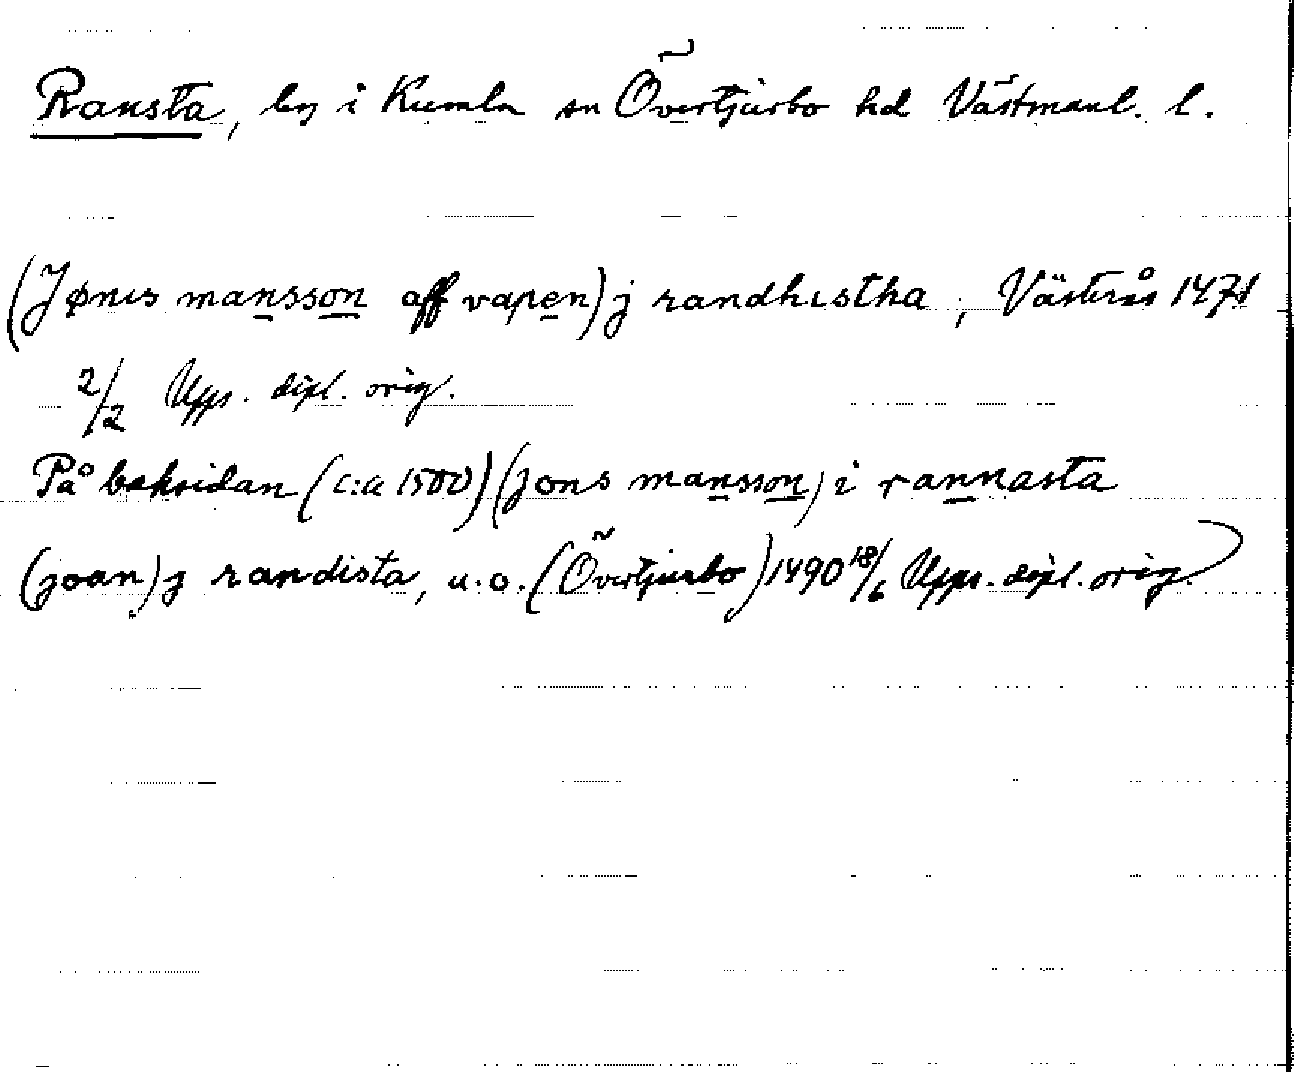 Ransta, by i Kumla sn Övertjurbo hd Västmanl. l.
(Jønis mansson aff vapen) j randhistha, Västerås 1471
2/2 Upps. dipl. orig.
På baksidan (c:a 1500) (jons mansson) i rannasta
(joan) j randista, u.o. (Övertjurbo) 1490 18/6 Upps. dipl. orig.